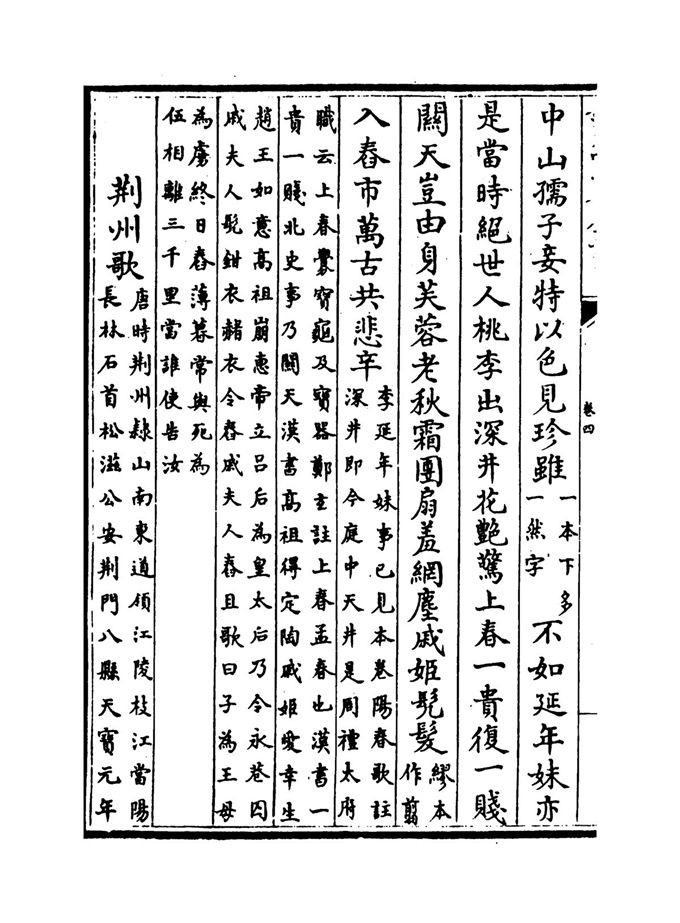 卷四
中山孺子妾特以色見珍雖一本下多一然字不如延年妹亦
是當時絕世人桃李出深井花艷驚上春一貴復一賤
關天豈由身芙蓉老秋霜團扇羞網塵戚姬髠髮繆本作翦
入舂市萬古共悲辛李延年妹事已見本卷陽春歌註深井即今庭中天井是周禮太府
職云上春釁寶龜及寶器鄭玄註上春孟春也漢書一
貴一賤北史事乃關天漢書高祖得定陶戚姬愛幸生
趙王如意高祖崩惠帝立呂后為皇太后乃令永巷囚
戚夫人髠鉗衣赭衣令舂戚夫人舂且歌曰子為王母
為虜終日舂薄暮常與死為
伍相離三千里當誰使告汝
荆州歌唐時荆州隸山南東道領江陵枝江當陽
長林石首松滋公安荆門八縣天寶元年